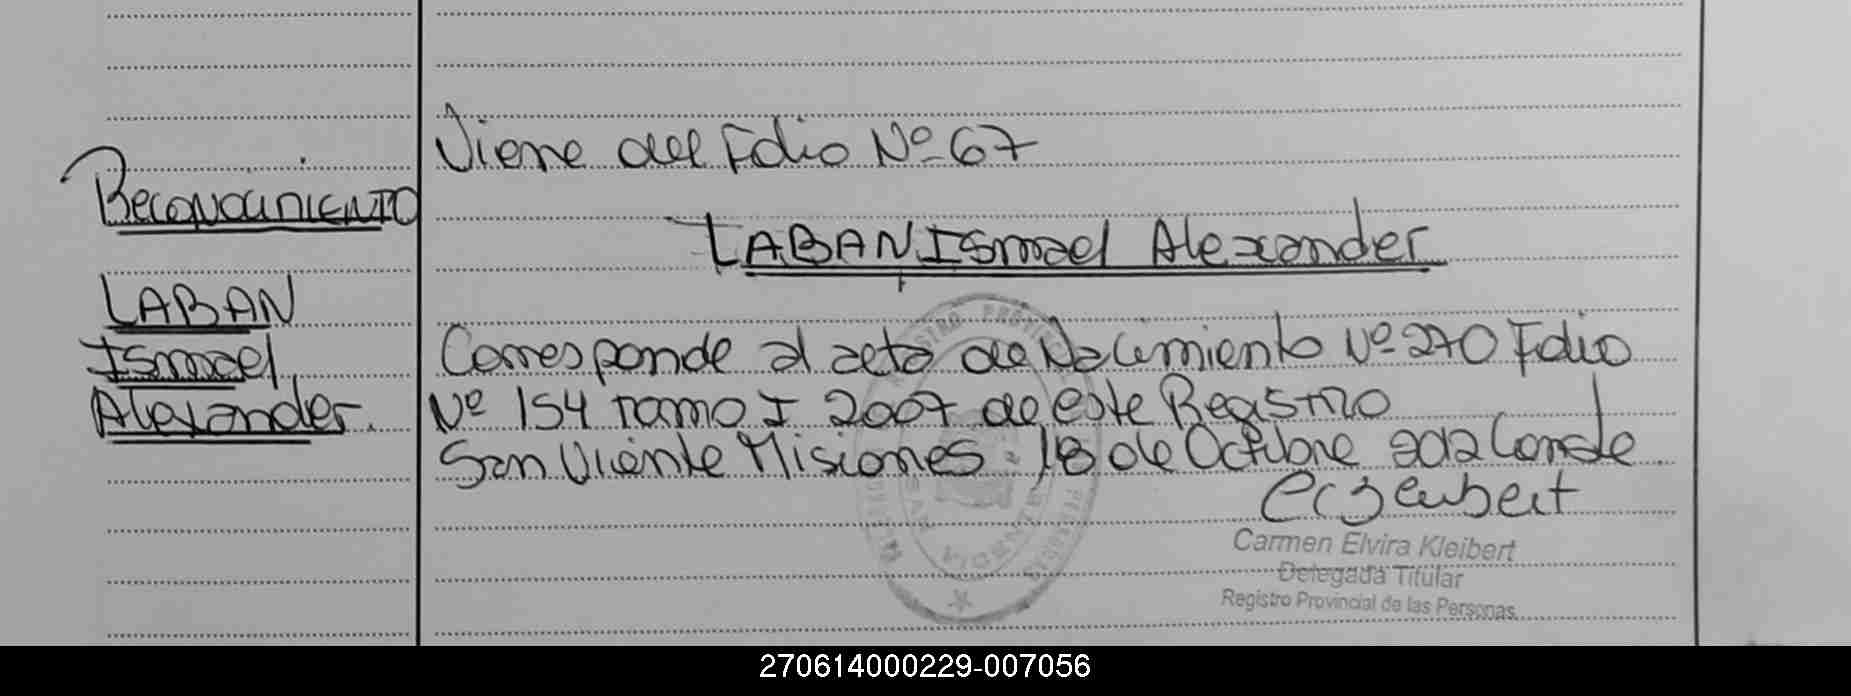 Viene del Folio Nº 67
Reconocimiento
LABAN Ismael Alexander
LABAN
Ismael
Alexander.
Corresponde al acta de Nacimiento Nº 270 Folio
Nº 154 Tomo I 2007 de este Registro
San Vicente Misiones 18 de Octubre 2012 Conste
Carmen Elvira Kleibert
Delegada Titular
Registro Provincial de las Personas
270614000229-007056